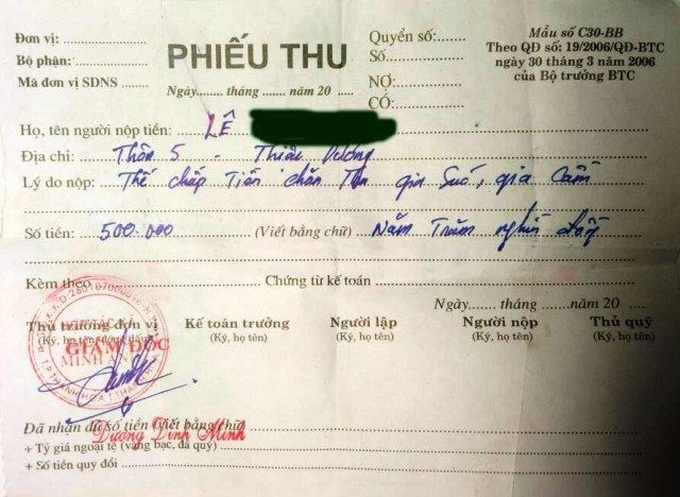 Đơn vị:
Bộ phận:
Mã đơn vị SDNS
PHIẾU THU
Ngày...... tháng ...... năm 20 .....
Quyển số:
Số:
NỢ:
CÓ:
Mẫu số C30-BB
Theo QĐ số: 19/2006/QĐ-BTC
ngày 30 tháng 3 năm 2006
của Bộ trưởng BTC
Họ, tên người nộp tiền: LÊ
Địa chỉ: Thôn 5 - Thiệu Dương
Lý do nộp: Thế chấp Tiền chăn gia Súc, gia Cầm
Số tiền: 500.000 (Viết bằng chữ) Năm Trăm nghìn đồng
Kèm theo Chứng từ kế toán
Ngày...... tháng ...... năm 20 .....
Thủ trưởng đơn vị Kế toán trưởng Người lập Người nộp Thủ quỹ
(Ký, họ tên, đóng dấu) (Ký, họ tên) (Ký, họ tên) (Ký, họ tên) (Ký, họ tên)
GIÁM ĐỐC
Đã nhận đủ số tiền (Viết bằng chữ)
Dương Đình Minh
+ Tỷ giá ngoại tệ (vàng bạc, đá quý)
+ Số tiền quy đổi